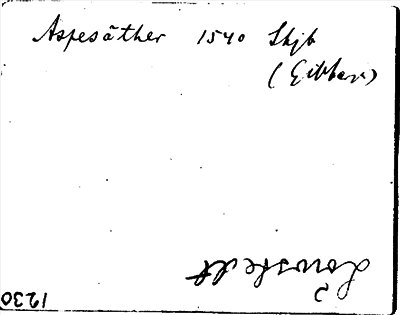 Aspesäther 1540 Skjb
(Gibberyd)
Lönstedt
1230